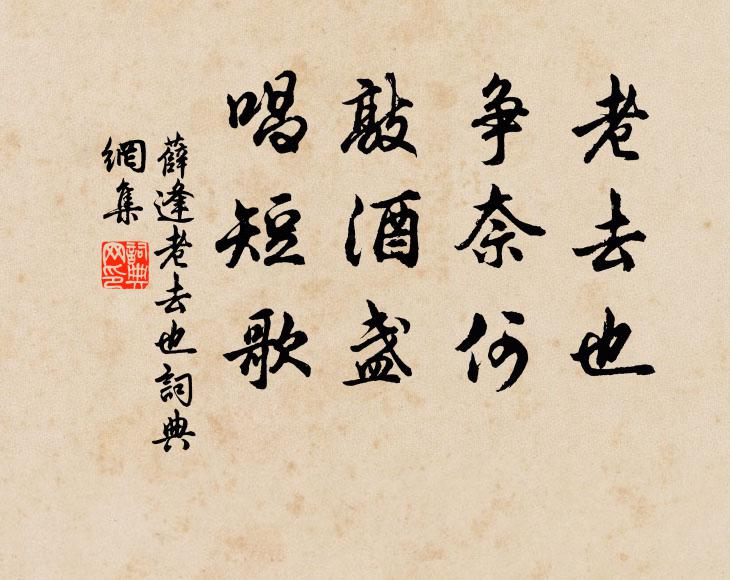 老去也
争奈何
敲酒盏
唱短歌
薛逢老去也詞典
網集
詞典網印